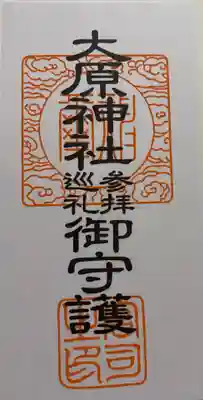 大原神社
参拝
巡礼
御守護